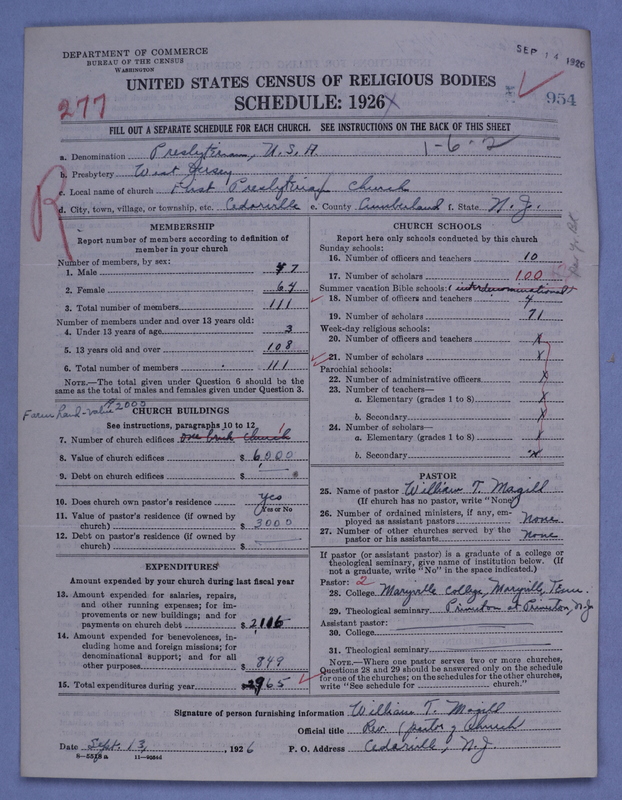 DEPARTMENT OF COMMERCE
BUREAU OF THE CENSUS
WASHINGTON
SEP 14 1926
UNITED STATES CENSUS OF RELIGIOUS BODIES
277
SCHEDULE: 1926
954
FILL OUT A SEPARATE SCHEDULE FOR EACH CHURCH. SEE INSTRUCTIONS ON THE BACK OF THIS SHEET
a. Denomination Presbyterian, U.S.A. 1-6-2
b. Presbytery West Jersey
c. Local name of church First Presbyterian Church
d. City, town, village, or township, etc. Cedarville e. County Cumberland f. State N.J.
R
MEMBERSHIP
Report number of members according to definition of
member in your church
Number of members, by sex:
1. Male 47
2. Female 64
3. Total number of members 111
Number of members under and over 13 years old:
4. Under 13 years of age 3
5. 13 years old and over 108
6. Total number of members 111
NOTE.—The total given under Question 6 should be the
same as the total of males and females given under Question 3.
Farm Land-value $2000
CHURCH BUILDINGS
See instructions, paragraphs 10 to 12
7. Number of church edifices one brick church 1
8. Value of church edifices $ 6000
9. Debt on church edifices $
10. Does church own pastor's residence yes
(Yes or No)
11. Value of pastor's residence (if owned by
church) $ 3000
12. Debt on pastor's residence (if owned by
church) $
EXPENDITURES
Amount expended by your church during last fiscal year
13. Amount expended for salaries, repairs,
and other running expenses; for im-
provements or new buildings; and for
payments on church debt $ 2116
14. Amount expended for benevolences, in-
cluding home and foreign missions; for
denominational support; and for all
other purposes $ 849
15. Total expenditures during year 2965
CHURCH SCHOOLS
Report here only schools conducted by this church
Sunday schools:
16. Number of officers and teachers 10
17. Number of scholars 100
Summer vacation Bible schools: 1 interdenominational
18. Number of officers and teachers 4
19. Number of scholars 71
Week-day religious schools:
20. Number of officers and teachers x
21. Number of scholars x
Parochial schools:
22. Number of administrative officers x
23. Number of teachers—
a. Elementary (grades 1 to 8) x
b. Secondary x
24. Number of scholars—
a. Elementary (grades 1 to 8) x
b. Secondary x
PASTOR
25. Name of pastor William T. Magill
(If church has no pastor, write "None")
26. Number of ordained ministers, if any, em-
ployed as assistant pastors None
27. Number of other churches served by the
pastor or his assistants None
If pastor (or assistant pastor) is a graduate of a college or
theological seminary, give name of institution below. (If
not a graduate, write "No" in the space indicated.)
Pastor: 2
28. College Maryville College, Maryville, Tenn.
29. Theological seminary Princeton at Princeton, N.J.
Assistant pastor:
30. College
31. Theological seminary
NOTE.—Where one pastor serves two or more churches,
Questions 28 and 29 should be answered only on the schedule
for one of the churches; on the schedules for the other churches,
write "See schedule for church."
Signature of person furnishing information William T. Magill
Official title Rev. (pastor of Church
Date Sept. 13, 1926 P. O. Address Cedarville, N.J.